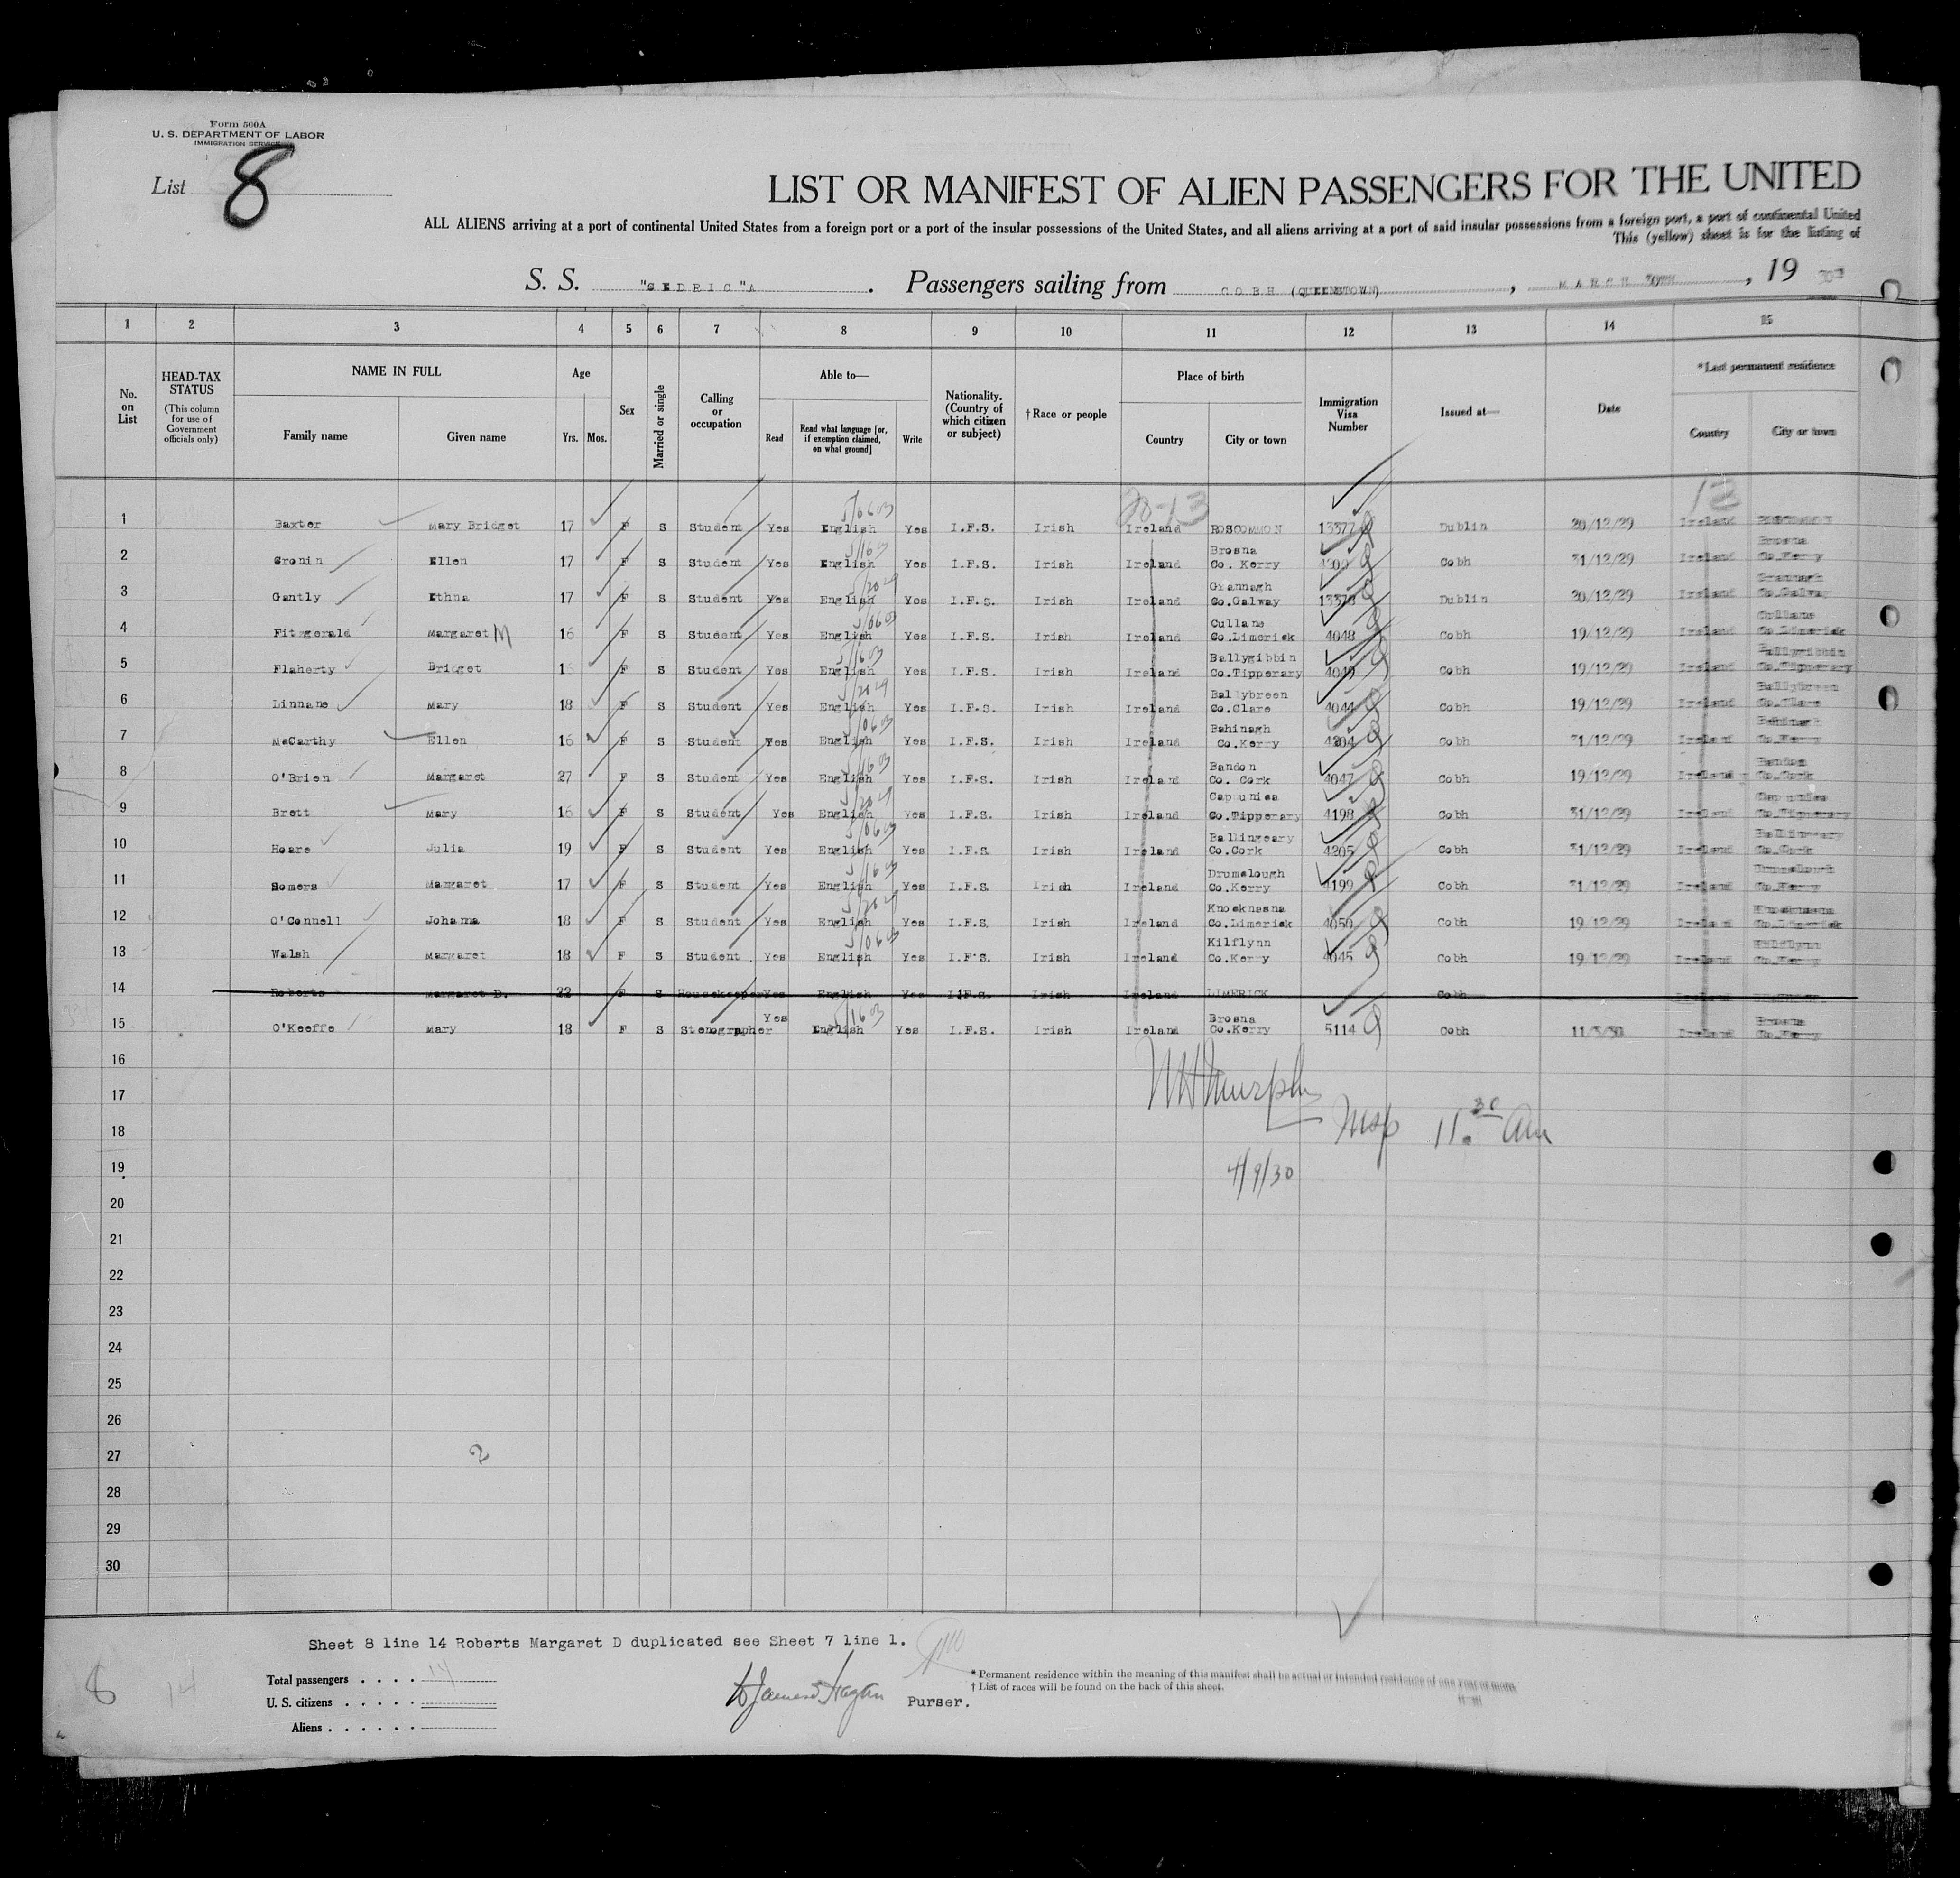 Form 500A
U. S. DEPARTMENT OF LABOR
IMMIGRATION SERVICE
List 8
LIST OR MANIFEST OF ALIEN PASSENGERS FOR THE UNITED
ALL ALIENS arriving at a port of continental United States from a foreign port or a port of the insular possessions of the United States, and all aliens arriving at a port of said insular possessions from a foreign port, a port of continental United
This (yellow) sheet is for the listing of
S. S. "CEDRIC"A . Passengers sailing from COBH (QUEENSTOWN) , MARCH 30TH , 19 30
1 2 3 4 5 6 7 8 9 10 11 12 13 14 15
No. on List
HEAD-TAX STATUS
(This column for use of Government officials only)
NAME IN FULL
Family name Given name
Age
Yrs. Mos.
Sex
Married or single
Calling or occupation
Able to—
Read
Read what language [or, if exemption claimed, on what ground]
Write
Nationality. (Country of which citizen or subject)
† Race or people
Place of birth
Country City or town
Immigration Visa Number
Issued at—
Date
* Last permanent residence
Country City or town
1 Baxter Mary Bridget 17 F S Student Yes English Yes I.F.S. Irish Ireland ROSCOMMON 13377 Dublin 20/12/29 Ireland ROSCOMMON
2 Cronin Ellen 17 F S Student Yes English Yes I.F.S. Irish Ireland Brosna Co. Kerry Cobh 31/12/29 Ireland Brosna Co.Kerry
3 Gantly Ethna 17 F S Student Yes English Yes I.F.S. Irish Ireland Grannagh Co.Galway 13378 Dublin 20/12/29 Ireland Grannagh Co.Galway
4 Fitzgerald Margaret M 16 F S Student Yes English Yes I.F.S. Irish Ireland Cullane Co.Limerick 4048 Cobh 19/12/29 Ireland Cullane Co.Limerick
5 Flaherty Bridget F S Student Yes English Yes I.F.S. Irish Ireland Ballygibbin Co.Tipperary 4049 Cobh 19/12/29 Ireland Ballygibbin Co.Tipperary
6 Linnane Mary 18 F S Student Yes English Yes I.F.S. Irish Ireland Ballybreen Co.Clare 4044 Cobh 19/12/29 Ireland Ballybreen Co.Clare
7 McCarthy Ellen 16 F S Student Yes English Yes I.F.S. Irish Ireland Behinagh Co.Kerry 4204 Cobh 31/12/29 Ireland Behinagh Co.Kerry
8 O'Brien Margaret 27 F S Student Yes English Yes I.F.S. Irish Ireland Bandon Co. Cork 4047 Cobh 19/12/29 Ireland Bandon Co.Cork
9 Brett Mary 16 F S Student Yes English Yes I.F.S. Irish Ireland Co.Tipperary 4198 Cobh 31/12/29 Ireland Co.Tipperary
10 Hoare Julia 19 F S Student Yes English Yes I.F.S. Irish Ireland Ballingeary Co.Cork 4205 Cobh 31/12/29 Ireland Ballingeary Co.Cork
11 Somers Margaret 17 F S Student Yes English Yes I.F.S. Irish Ireland Drumclough Co.Kerry 4199 Cobh 31/12/29 Ireland Drumclough Co.Kerry
12 O'Connell Johanna 18 F S Student Yes English Yes I.F.S. Irish Ireland Knocknasna Co.Limerick 4050 Cobh 19/12/29 Ireland Knocknasna Co.Limerick
13 Walsh Margaret 18 F S Student Yes English Yes I.F.S. Irish Ireland Kilflynn Co.Kerry 4045 Cobh 19/12/29 Ireland Kilflynn Co.Kerry
14 Roberts Margaret D. 22 F S Housekeeper Yes English Yes I.F.S. Irish Ireland LIMERICK Cobh Ireland
15 O'Keeffe Mary 18 F S Stenographer Yes English Yes I.F.S. Irish Ireland Brosna Co.Kerry 5114 Cobh 11/3/30 Ireland Brosna Co.Kerry
16
17
18
19
20
21
22
23
24
25
26
27
28
29
30
Murphy
11.30 am
4/9/30
2
Sheet 8 line 14 Roberts Margaret D duplicated see Sheet 7 line 1.
8 14
Total passengers . . . . 14
U. S. citizens . . . . .
Aliens . . . . . .
Purser.
* Permanent residence within the meaning of this manifest shall be actual or intended residence of one year or more.
† List of races will be found on the back of this sheet.